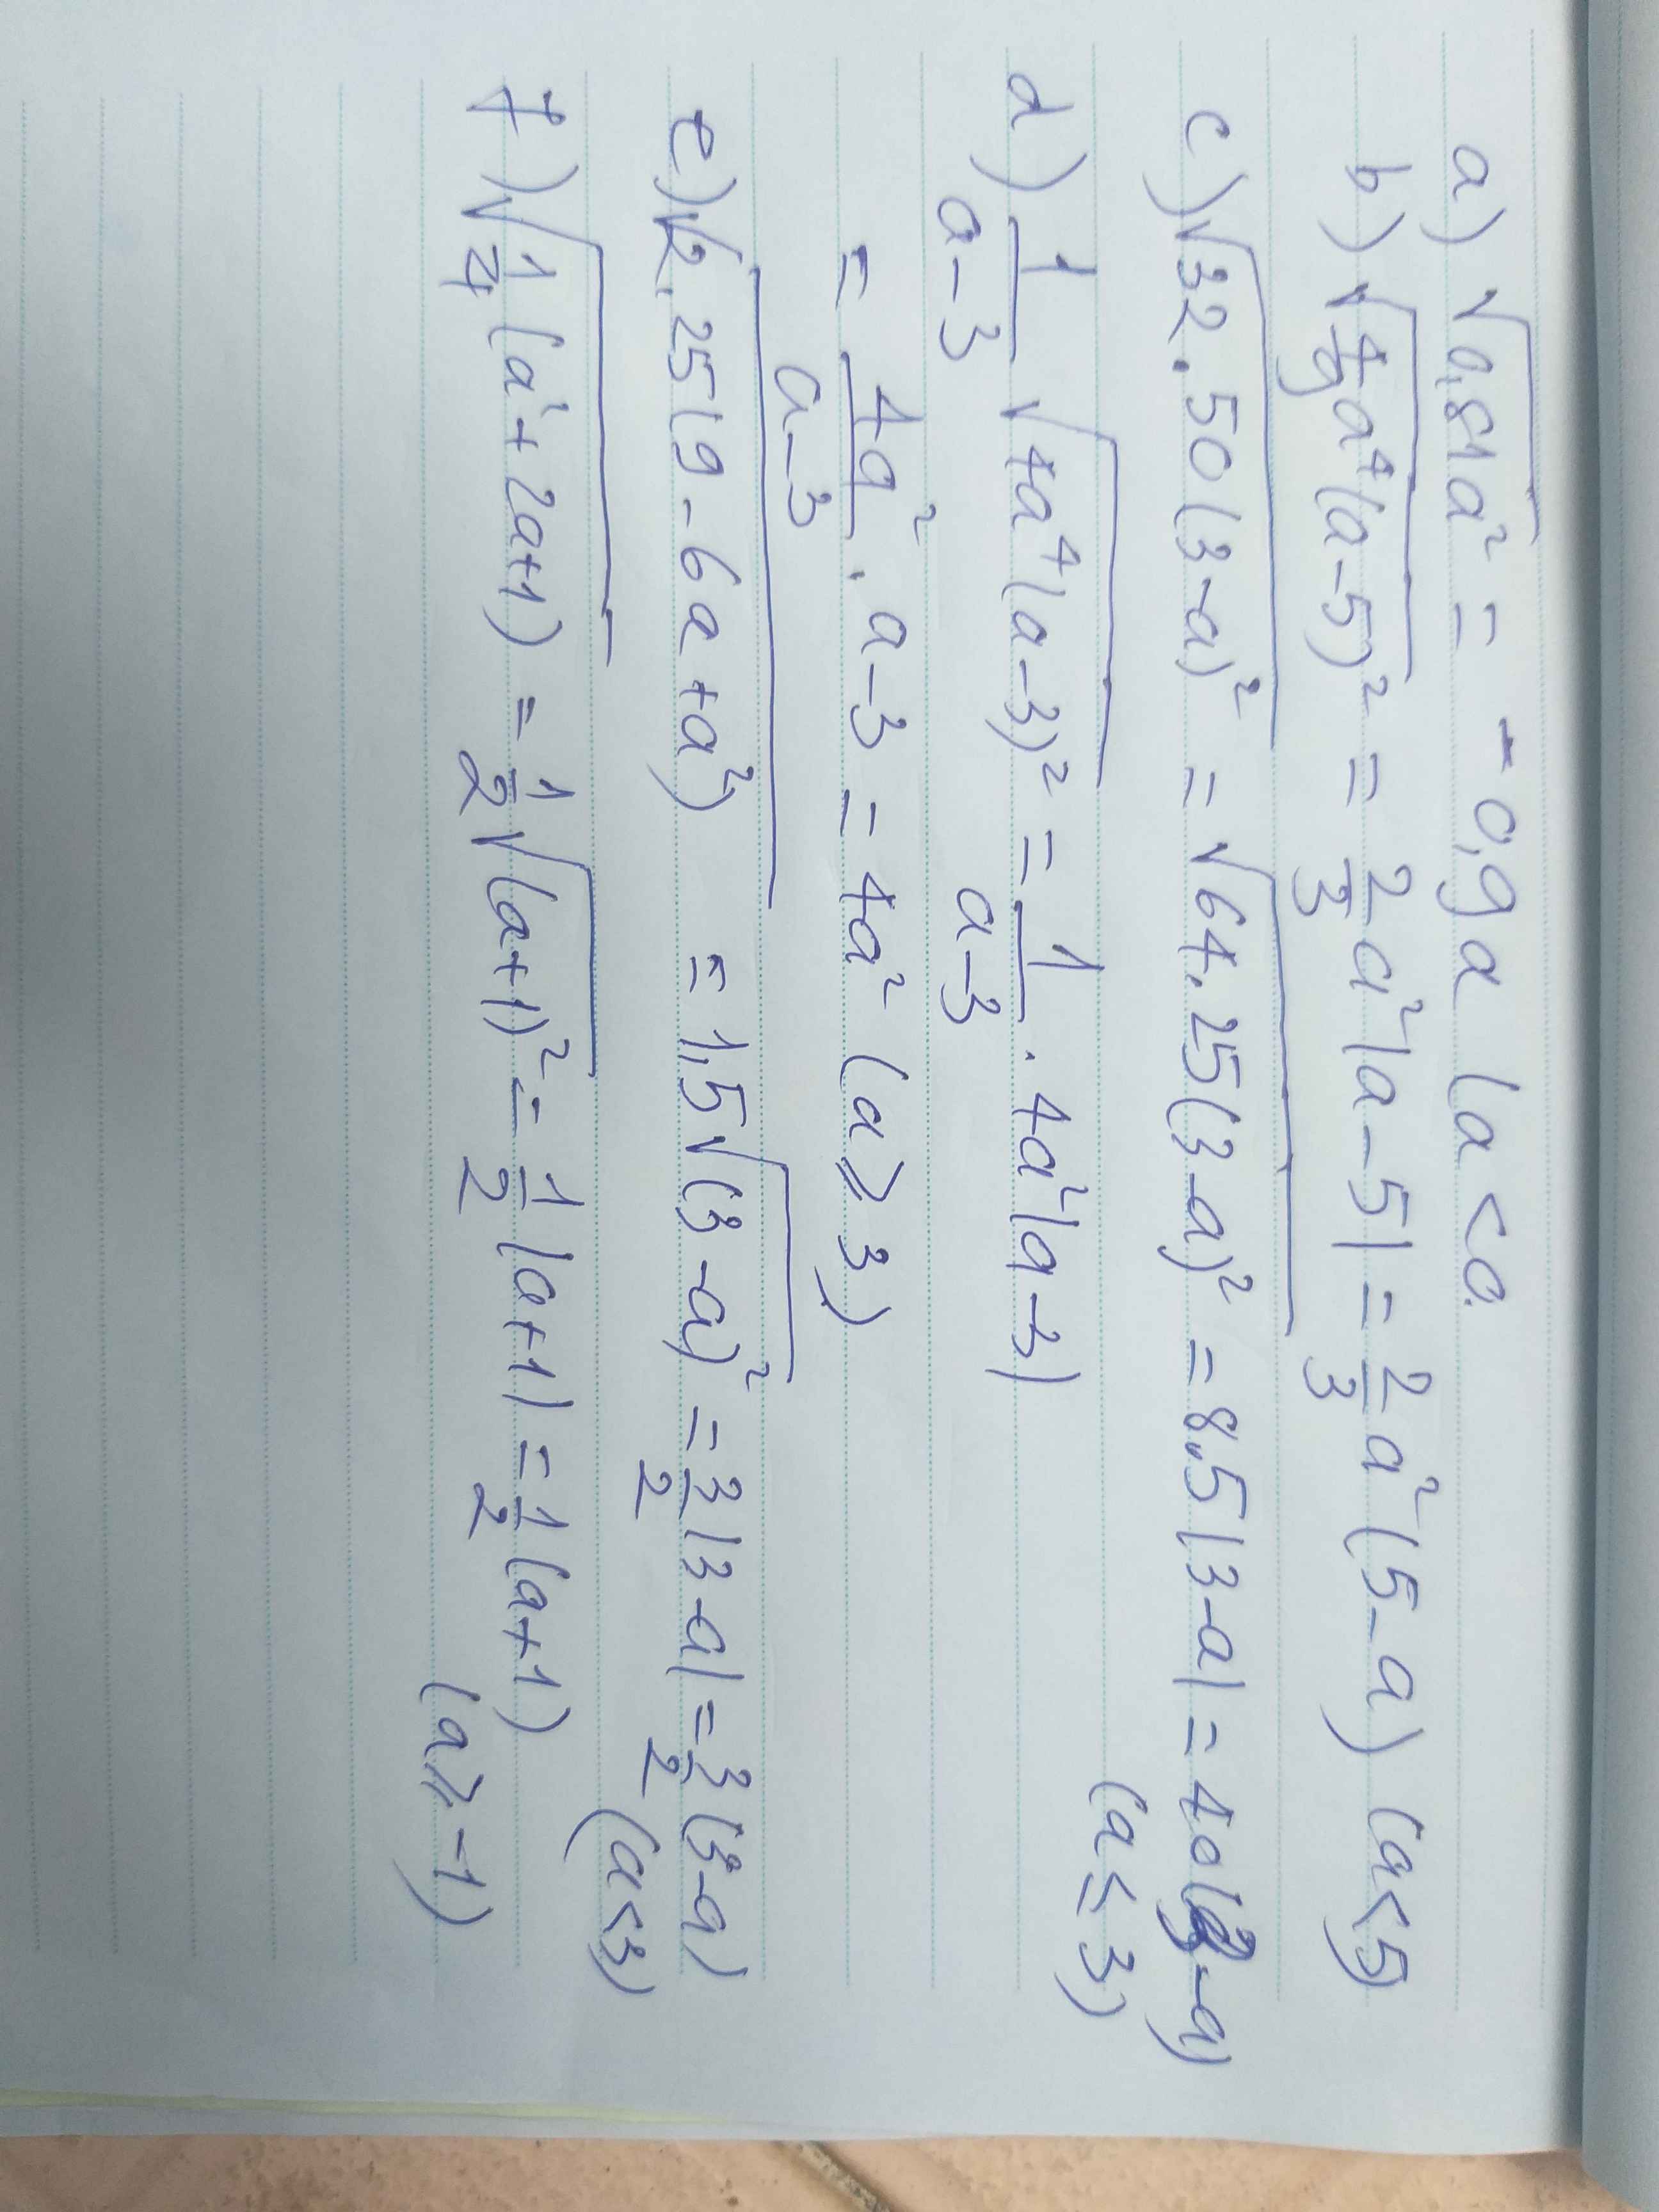 a) √0,81a² = -0,9a (a<0
b) √4/9 a⁴(a-5)² = 2/3 a²|a-5| = 2/3 a²(5-a) (a<5)
c) √32.50(3-a)² = √64.25(3-a)² = 8.5|3-a| = 40(3-a)
(a≤3)
d) 1/a-3 √4a⁴(a-3)² = 1/a-3 . 4a²|a-3|
= 4a²/a-3 . a-3 = 4a² (a⩾3)
e) √2,25(9-6a+a²) = 1,5√(3-a)² = 3/2|3-a| = 3/2(3-a)
(a<3)
f) √1/4(a²+2a+1) = 1/2√(a+1)² = 1/2|a+1| = 1/2(a+1)
(a⩾-1)